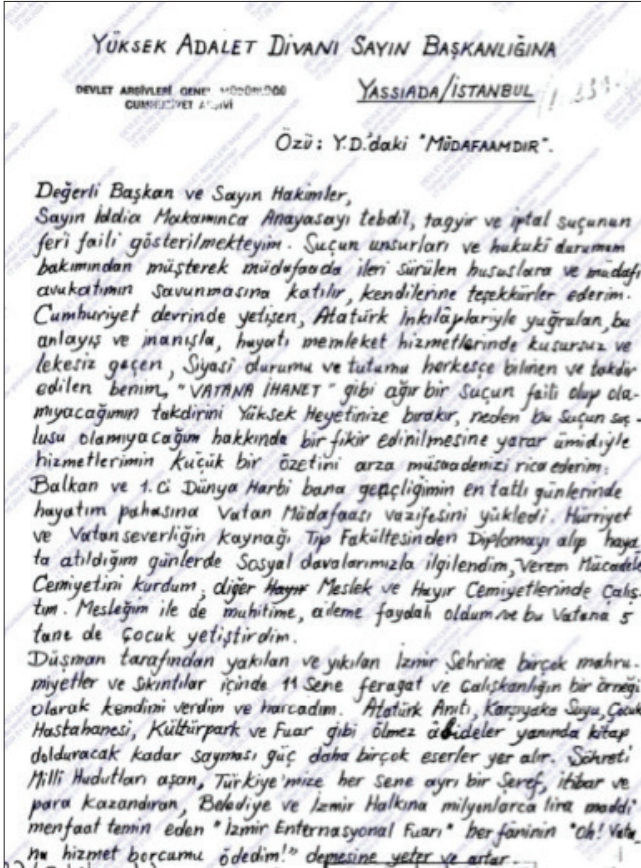 YÜKSEK ADALET DİVANI SAYIN BAŞKANLIĞINA
DEVLET ARŞİVLERİ GENEL MÜDÜRLÜĞÜ
CUMHURİYET ARŞİVİ
YASSIADA/İSTANBUL
Özü: Y.D.'daki "MÜDAFAAMDIR".
Değerli Başkan ve Sayın Hakimler,
Sayın İddia Makamınca Anayasayı tebdil, tagyir ve iptal suçunun
feri faili gösterilmekteyim. Suçun unsurları ve hukukî durumum
bakımından müşterek müdafaada ileri sürülen hususlara ve müdafi
avukatımın savunmasına katılır, kendilerine teşekkürler ederim.
Cumhuriyet devrinde yetişen, Atatürk İnkılâplariyle yuğrulan, bu
anlayış ve inanışla, hayatı memleket hizmetlerinde kusursuz ve
lekesiz geçen, Siyasî durumu ve tutumu herkesçe bilinen ve takdir
edilen benim, "VATANA İHANET" gibi ağır bir Suçun faili olup ola-
mıyacağımın takdirini Yüksek Heyetinize bırakır, neden bu Suçun suç-
lusu olamıyacağım hakkında bir fikir edinilmesine yarar ümidiyle
hizmetlerimin Küçük bir özetini arza müsaadenizi rica ederim:
Balkan ve 1.Ci Dünya Harbi bana gençliğimin en tatlı günlerinde
hayatım pahasına Vatan Müdafaası vazifesini yükledi. Hürriyet
ve Vatanseverliğin kaynağı Tıp Fakültesinden Diplomayı alıp haya
ta atıldığım günlerde Sosyal davalarımızla ilgilendim, Verem Mücadele
Cemiyetini kurdum, diğer Hayır Meslek ve Hayır Cemiyetlerinde Çalış-
tım. Mesleğim ile de muhitime, aileme faydalı oldum ve bu Vatana 5
tane de Çocuk yetiştirdim.
Düşman tarafından yakılan ve yıkılan İzmir Şehrine birçok mahru-
miyetler ve Sıkıntılar içinde 11 Sene feragat ve Çalışkanlığın bir örneği
olarak kendimi verdim ve harcadım. Atatürk Anıtı, Karşıyaka Suyu, Çocuk
Hastahanesi, Kültürpark ve Fuar gibi ölmez âbideler yanında kitap
dolduracak kadar sayması güç daha birçok eserler yer alır. Şöhreti
Milli Hudutları aşan, Türkiye'mize her sene ayrı bir Şeref, itibar ve
para kazandıran, Belediye ve İzmir Halkına milyonlarca lira maddî
menfaat temin eden "İzmir Enternasyonal Fuarı" her faninin "Oh! Vata
na hizmet borcumu ödedim!" demesine yeter ve artar.